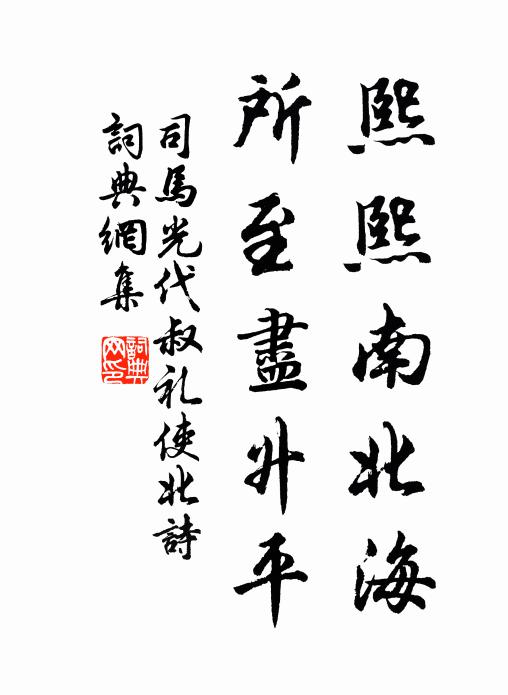 熙熙南北海
所至盡升平
司馬光代叔礼使北詩
詞典網集
詞典网印